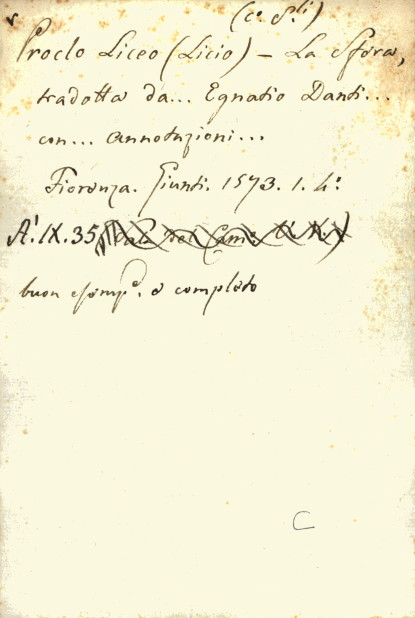 Proclo Liceo (Licio) — La Sfera,
tradotta da... Egnatio Danti...
con... annotazioni...
Fiorenza. Giunti. 1573. 1. 4º
A'.IX.35
buon esempº. e completo
C